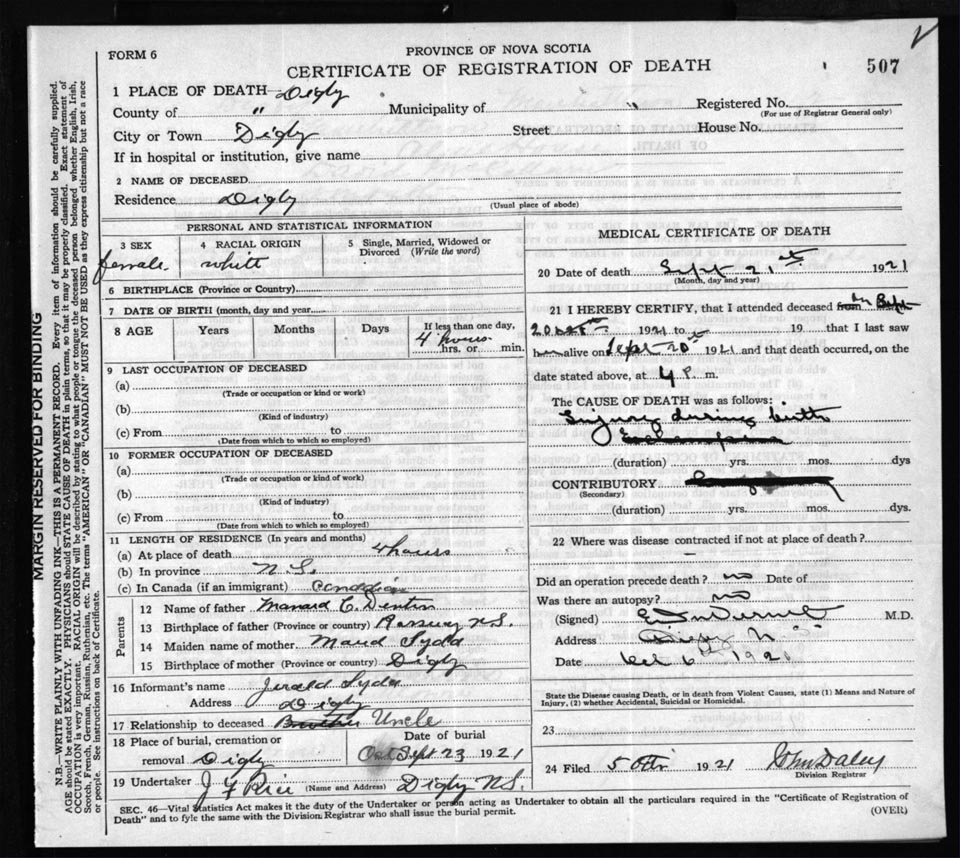 FORM 6
PROVINCE OF NOVA SCOTIA
CERTIFICATE OF REGISTRATION OF DEATH
507
1 PLACE OF DEATH Digby
County of " Municipality of " Registered No.
(For use of Registrar General only)
City or Town Digby Street House No.
If in hospital or institution, give name
2 NAME OF DECEASED
Residence Digby
(Usual place of abode)
PERSONAL AND STATISTICAL INFORMATION
3 SEX
female
4 RACIAL ORIGIN
white
5 Single, Married, Widowed or Divorced (Write the word)
6 BIRTHPLACE (Province or Country)
7 DATE OF BIRTH (month, day and year)
8 AGE Years Months Days If less than one day,
4 hours
hrs. or min.
9 LAST OCCUPATION OF DECEASED
(a)
(Trade or occupation or kind or work)
(b)
(Kind of industry)
(c) From to
(Date from which to which so employed)
10 FORMER OCCUPATION OF DECEASED
(a)
(Trade or occupation or kind of work)
(b)
(Kind of industry)
(c) From to
(Date from which to which so employed)
11 LENGTH OF RESIDENCE (In years and months)
(a) At place of death 4 hours
(b) In province N.S.
(c) In Canada (if an immigrant) Canadian
Parents
12 Name of father C. Denton
13 Birthplace of father (Province or country) N.S.
14 Maiden name of mother Maud Syda
15 Birthplace of mother (Province or country) Digby
16 Informant's name Jerald Syda
Address Digby
17 Relationship to deceased Brother Uncle
18 Place of burial, cremation or removal Digby
Date of burial
Oct Sept 23 1921
19 Undertaker J F Rice (Name and Address) Digby N.S.
MEDICAL CERTIFICATE OF DEATH
20 Date of death Sept 21st 1921
(Month, day and year)
21 I HEREBY CERTIFY, that I attended deceased from on Sept
20 1921 to 19 that I last saw
h alive on Sept 20th 1921 and that death occurred, on the
date stated above, at 4 P. m.
The CAUSE OF DEATH was as follows:
Injury during birth
(duration) yrs. mos. dys
CONTRIBUTORY
(Secondary)
(duration) yrs. mos. dys.
22 Where was disease contracted if not at place of death?
—
Did an operation precede death? no Date of
Was there an autopsy? no
(Signed) M.D.
Address Digby N.S.
Date Oct 6th 1921
State the Disease causing Death, or in death from Violent Causes, state (1) Means and Nature of
Injury, (2) whether Accidental, Suicidal or Homicidal.
23
24 Filed 5 Oct 1921 John Daley
Division Registrar
SEC. 46—Vital Statistics Act makes it the duty of the Undertaker or person acting as Undertaker to obtain all the particulars required in the "Certificate of Registration of
Death" and to fyle the same with the Division Registrar who shall issue the burial permit.
(OVER)
MARGIN RESERVED FOR BINDING
N.B.—WRITE PLAINLY WITH UNFADING INK—THIS IS A PERMANENT RECORD. Every item of information should be carefully supplied.
AGE should be stated EXACTLY. PHYSICIANS should STATE CAUSE OF DEATH in plain terms, so that it may be properly classified. Exact statement of
OCCUPATION is very important. RACIAL ORIGIN will be described by stating to what people or tongue the deceased person belonged whether English, Irish,
Scotch, French, German, Russian, Ruthenian, etc. The terms "AMERICAN" OR "CANADIAN" MUST NOT BE USED as they express citizenship but not a race
or people. See instructions on back of Certificate.